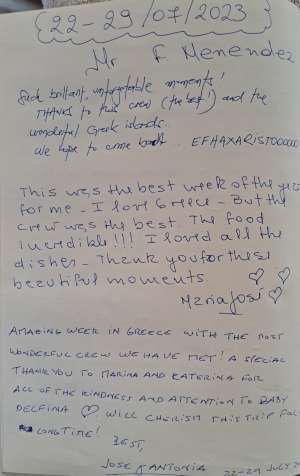 {22-29/07/2023}
Mr F. Menendez
Such brillant, unforgetable moments!
THANKS to this crew (the best!) and the
wonderful Greek islands.
We hope to come back.. EFHAXARISTOOOOOO
This was the best week of the year
for me - I love Greece - But the
crew was the best. The food
incredible!!! I loved all the
dishes - Thank you for these
beautiful moments.
Maria José
AMAZING WEEK IN GREECE WITH THE MOST
WONDERFUL CREW WE HAVE MET! A SPECIAL
THANK YOU TO MARINA AND KATERINA FOR
ALL OF THE KINDNESS AND ATTENTION TO BABY
DELFINA WILL CHERISH THIS TRIP FOR
LONG TIME!
BEST,
JOSE & ANTONIA
22-29 JULY